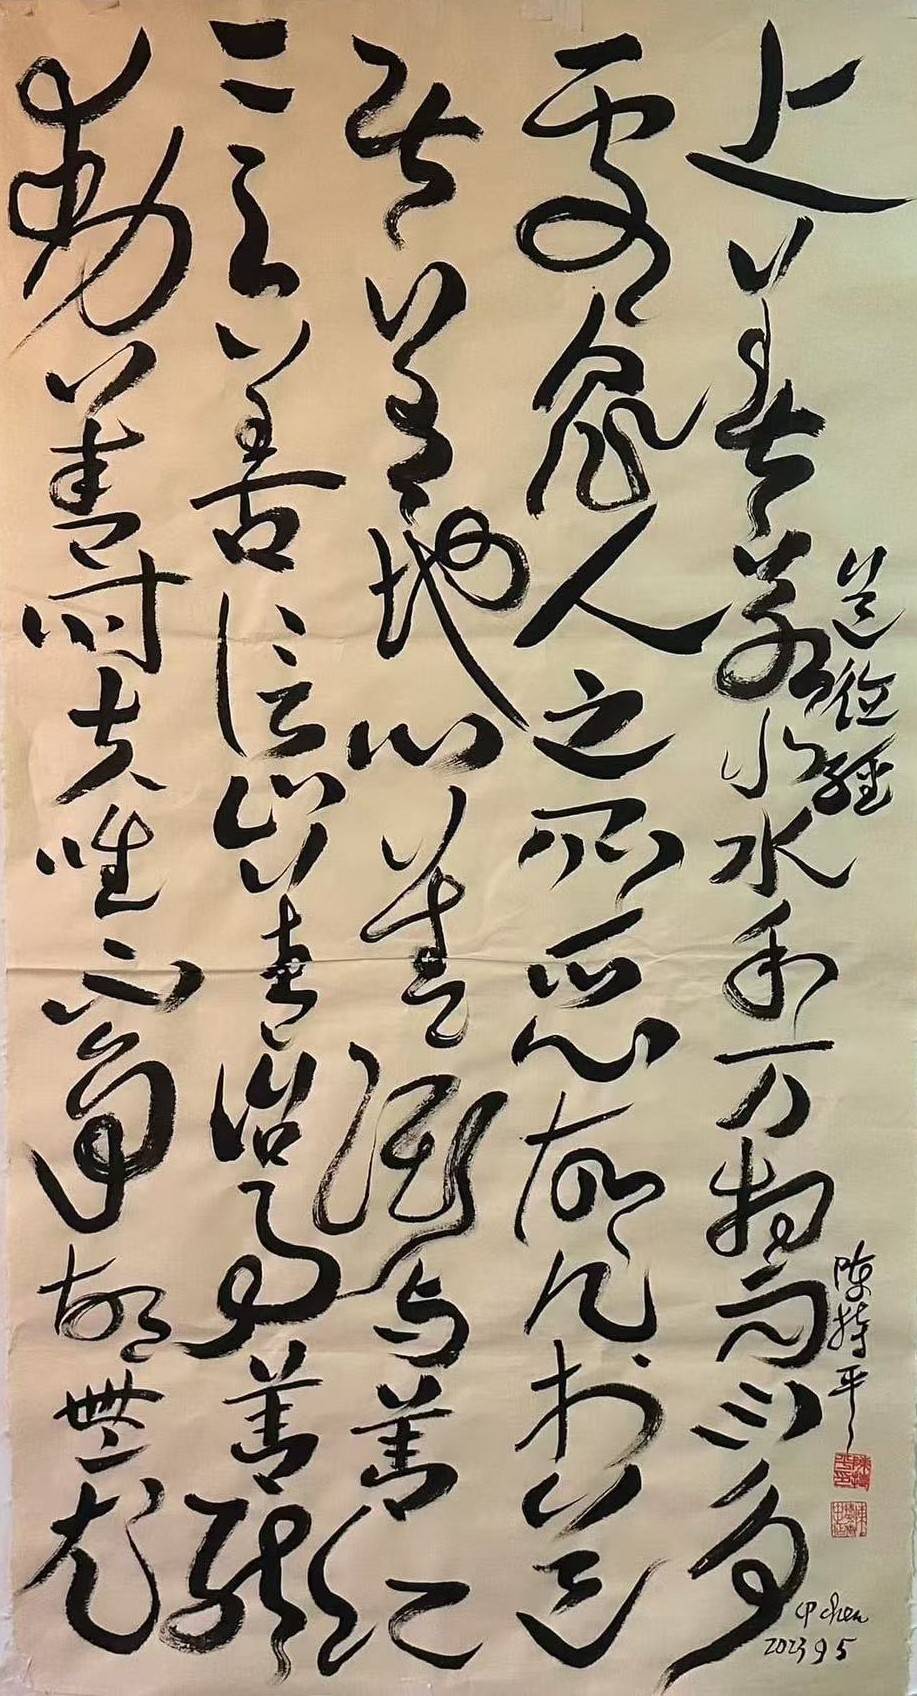 道德經
上善若水水利万物而不争
處眾人之所惡故几於道
居善地心善淵与善仁
言善信政善治事善能
動善时夫唯不争故無尤
陳持平
CP chen
2023 9 5